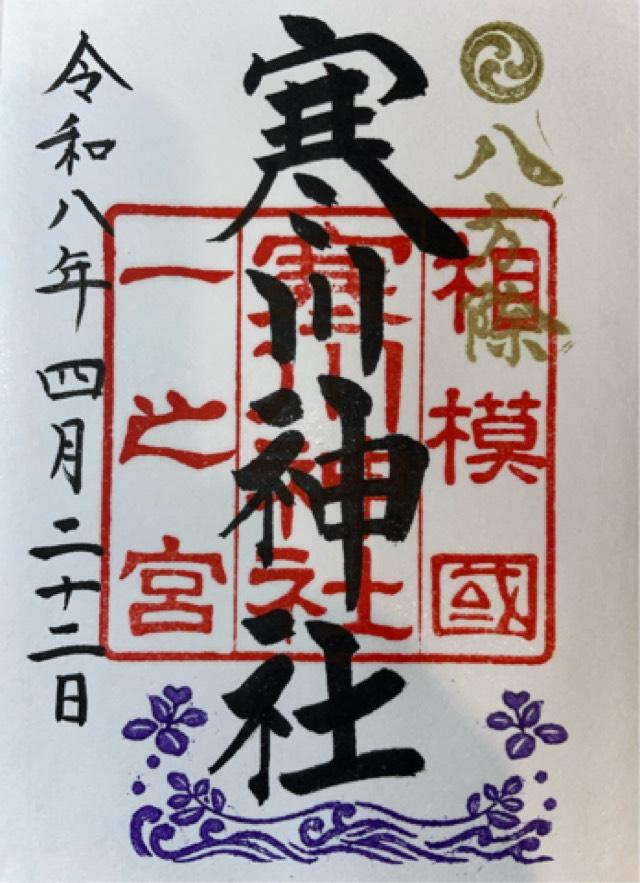 八方除
相模國
寒川神社
一之宮
寒川神社
令和八年四月二十二日